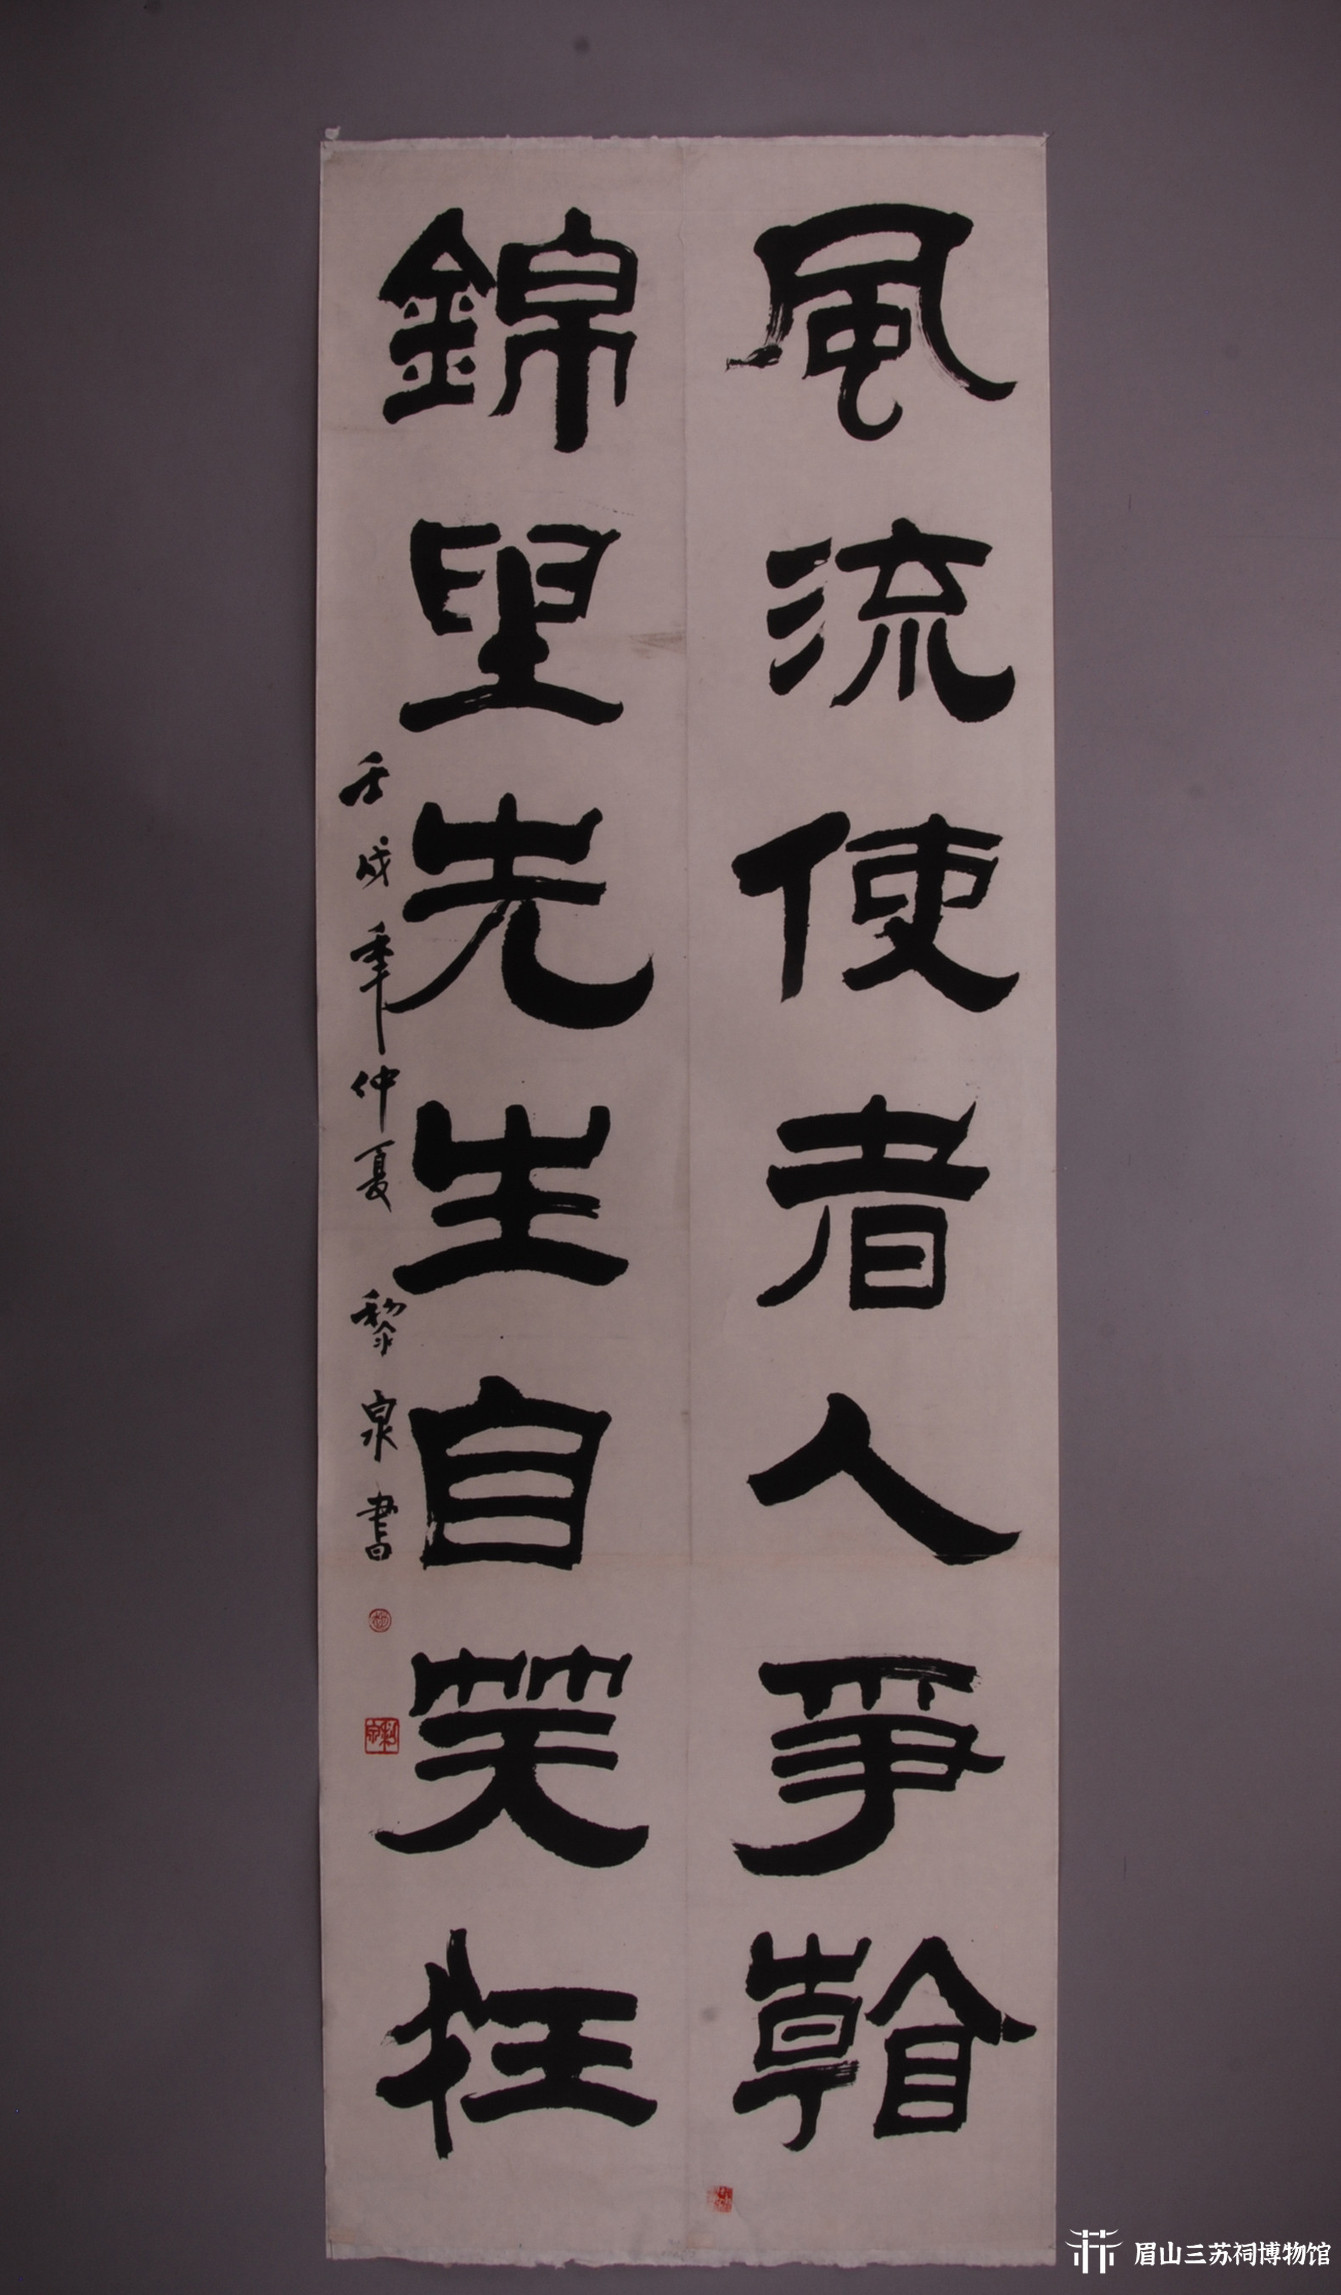 風流使者人爭看
錦里先生自笑狂
壬戌年仲夏 黎泉書
黎泉
眉山三苏祠博物馆